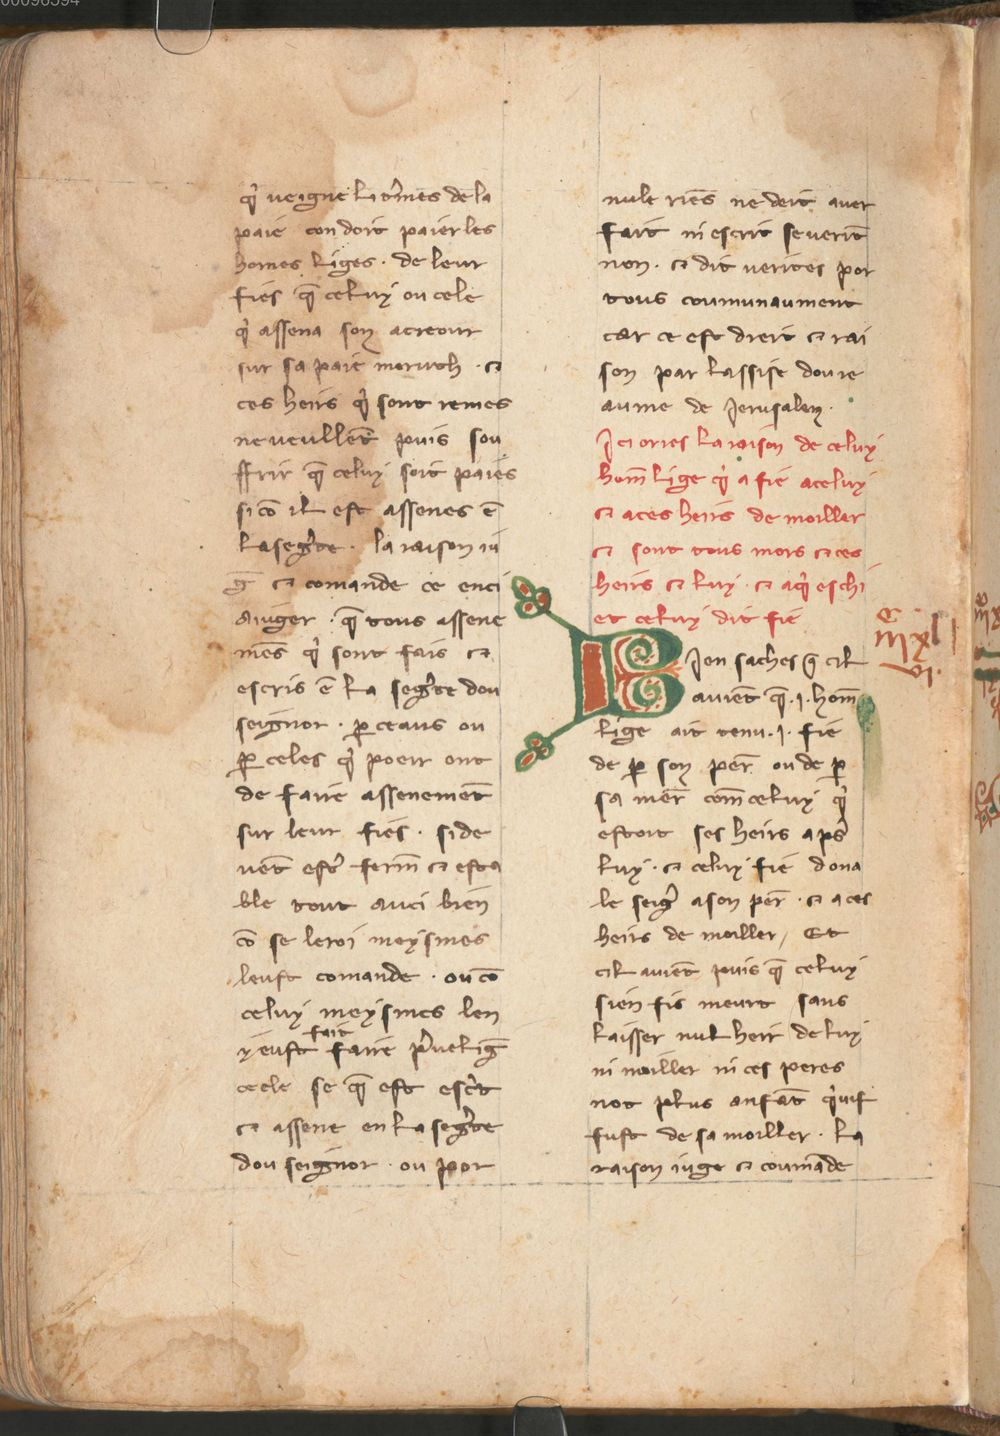 q̉ ueigne li t̉mes de la
paie con doit paier les
homes liges · de leur
fies q̄ celuy ou cele
q̉ assena son acreour
sur sa paie moruth · ⁊
ces heirs q̉ sont remes
ne veullēt puis sou
ffrir q̄ celuy soit paies
si cō il est assenes ē
la seg̉te · la raison iu
ḡ ⁊ comande ce enci
a iuger · q̄ tous assene
mēs q̉ sont fais ⁊
escris ē la seg̉te dou
seignor · ꝑ ceaus ou
ꝑ celes q̉ poeir ont
de faire assenemēt
sur leur fies · si de
uēt est̉ ferm̄ ⁊ esta
ble tout auci bien
cō se le roi meysmes
leust comande · ou cō
celuy meysmes len
y eust fait faire p̉ueliḡ
ce cle se q̄ est esc̉t
⁊ assene en la seg̉te
dou seignor · ou por
nule riēs ne deit auer
fait ni escrit se verite
non · ⁊ dit verites por
tous coumunaument
car ce est dreit ⁊ rai
son par lassise dou re
aume de Jerusalem ·
Ici ories la raison de celuy
hom̄ lige q̉ a fie a celuy
⁊ a ces heirs de moiller
⁊ sont tous mors ⁊ ces
heirs ⁊ luy · ⁊ a q̉ eschi
et celuy dit fie
Bien saches q̄ cil
auiēt q̄ · I · hom̄
lige ait tenu · I · fie
de ꝑ son per̄ ou de ꝑ
sa mer̄ com̄ celuy q̉
estoit ses heirs ap̉s
luy · ⁊ celuy fie dona
le seig̉ a son per̄ · ⁊ a ces
heirs de moiller / Et
cil auiēt puis q̄ celuy
sien fis meurt sans
laisser nul heir de luy
ni moiller ni ces peres
not plus anfāt q̉ vif
fust de sa moiller · la
raison iuge ⁊ coumāde